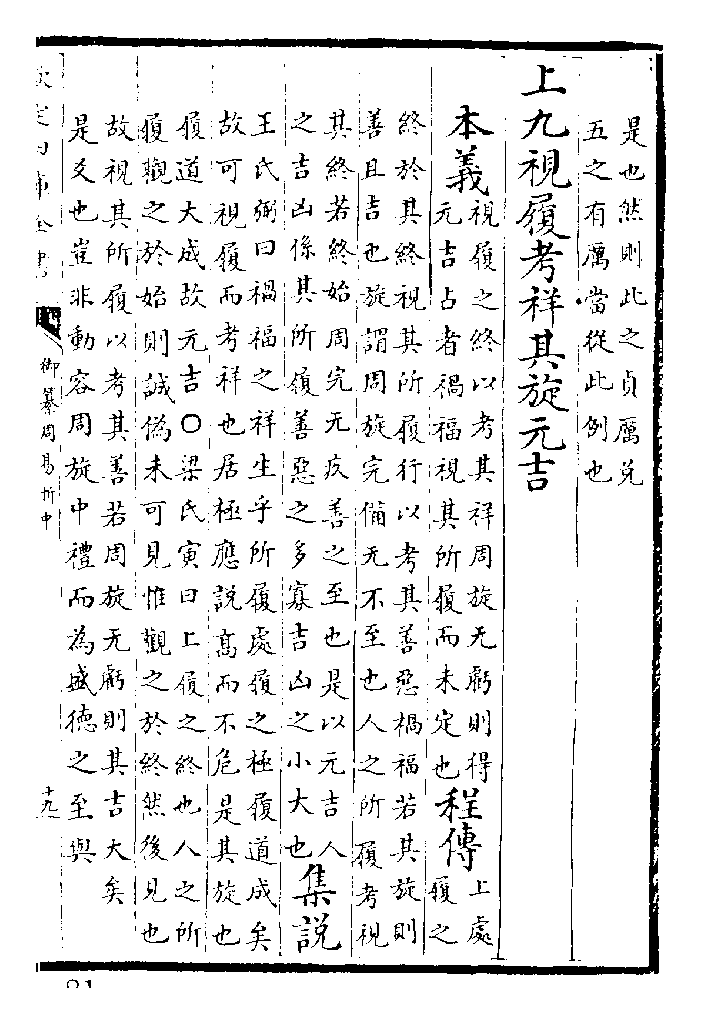 是也然則此之貞厲兌
五之有厲當從此例也
上九視履考祥其旋元吉
本義視履之終以考其祥周旋无虧則得
元吉占者禍福視其所履而未定也程傳上處
履之
終於其終視其所履行以考其善惡禍福若其旋則
善且吉也旋謂周旋完備无不至也人之所履考視
其終若終始周完无疚善之至也是以元吉人
之吉凶係其所履善惡之多寡吉凶之小大也集説
王氏弼曰禍福之祥生乎所履處履之極履道成矣
故可視履而考祥也居極應説髙而不危是其旋也
履道大成故元吉○梁氏寅曰上履之終也人之所
履觀之於始則誠偽未可見惟觀之於終然後見也
故視其所履以考其善若周旋无虧則其吉大矣
是爻也豈非動容周旋中禮而為盛德之至與
欽定四庫全書
御纂周易折中
十九
81